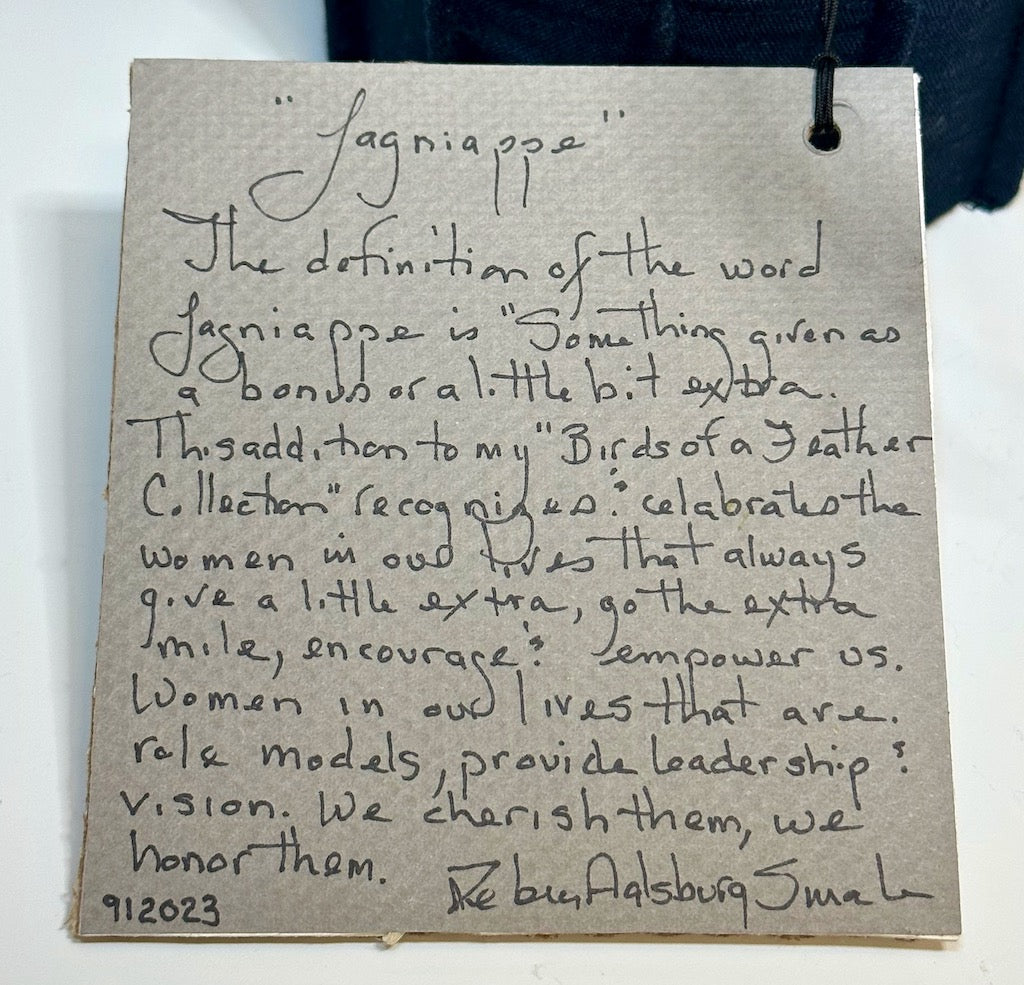 "Lagniappe"
The definition of the word
Lagniappe is "Something given as
a bonus or a little bit extra.
This addition to my "Birds of a Feather
Collection" recognizes & celebrates the
women in our lives that always
give a little extra, go the extra
mile, encourage & empower us.
Women in our lives that are.
role models, provide leadership &
vision. We cherish them, we
honor them.
Alsburg
912023